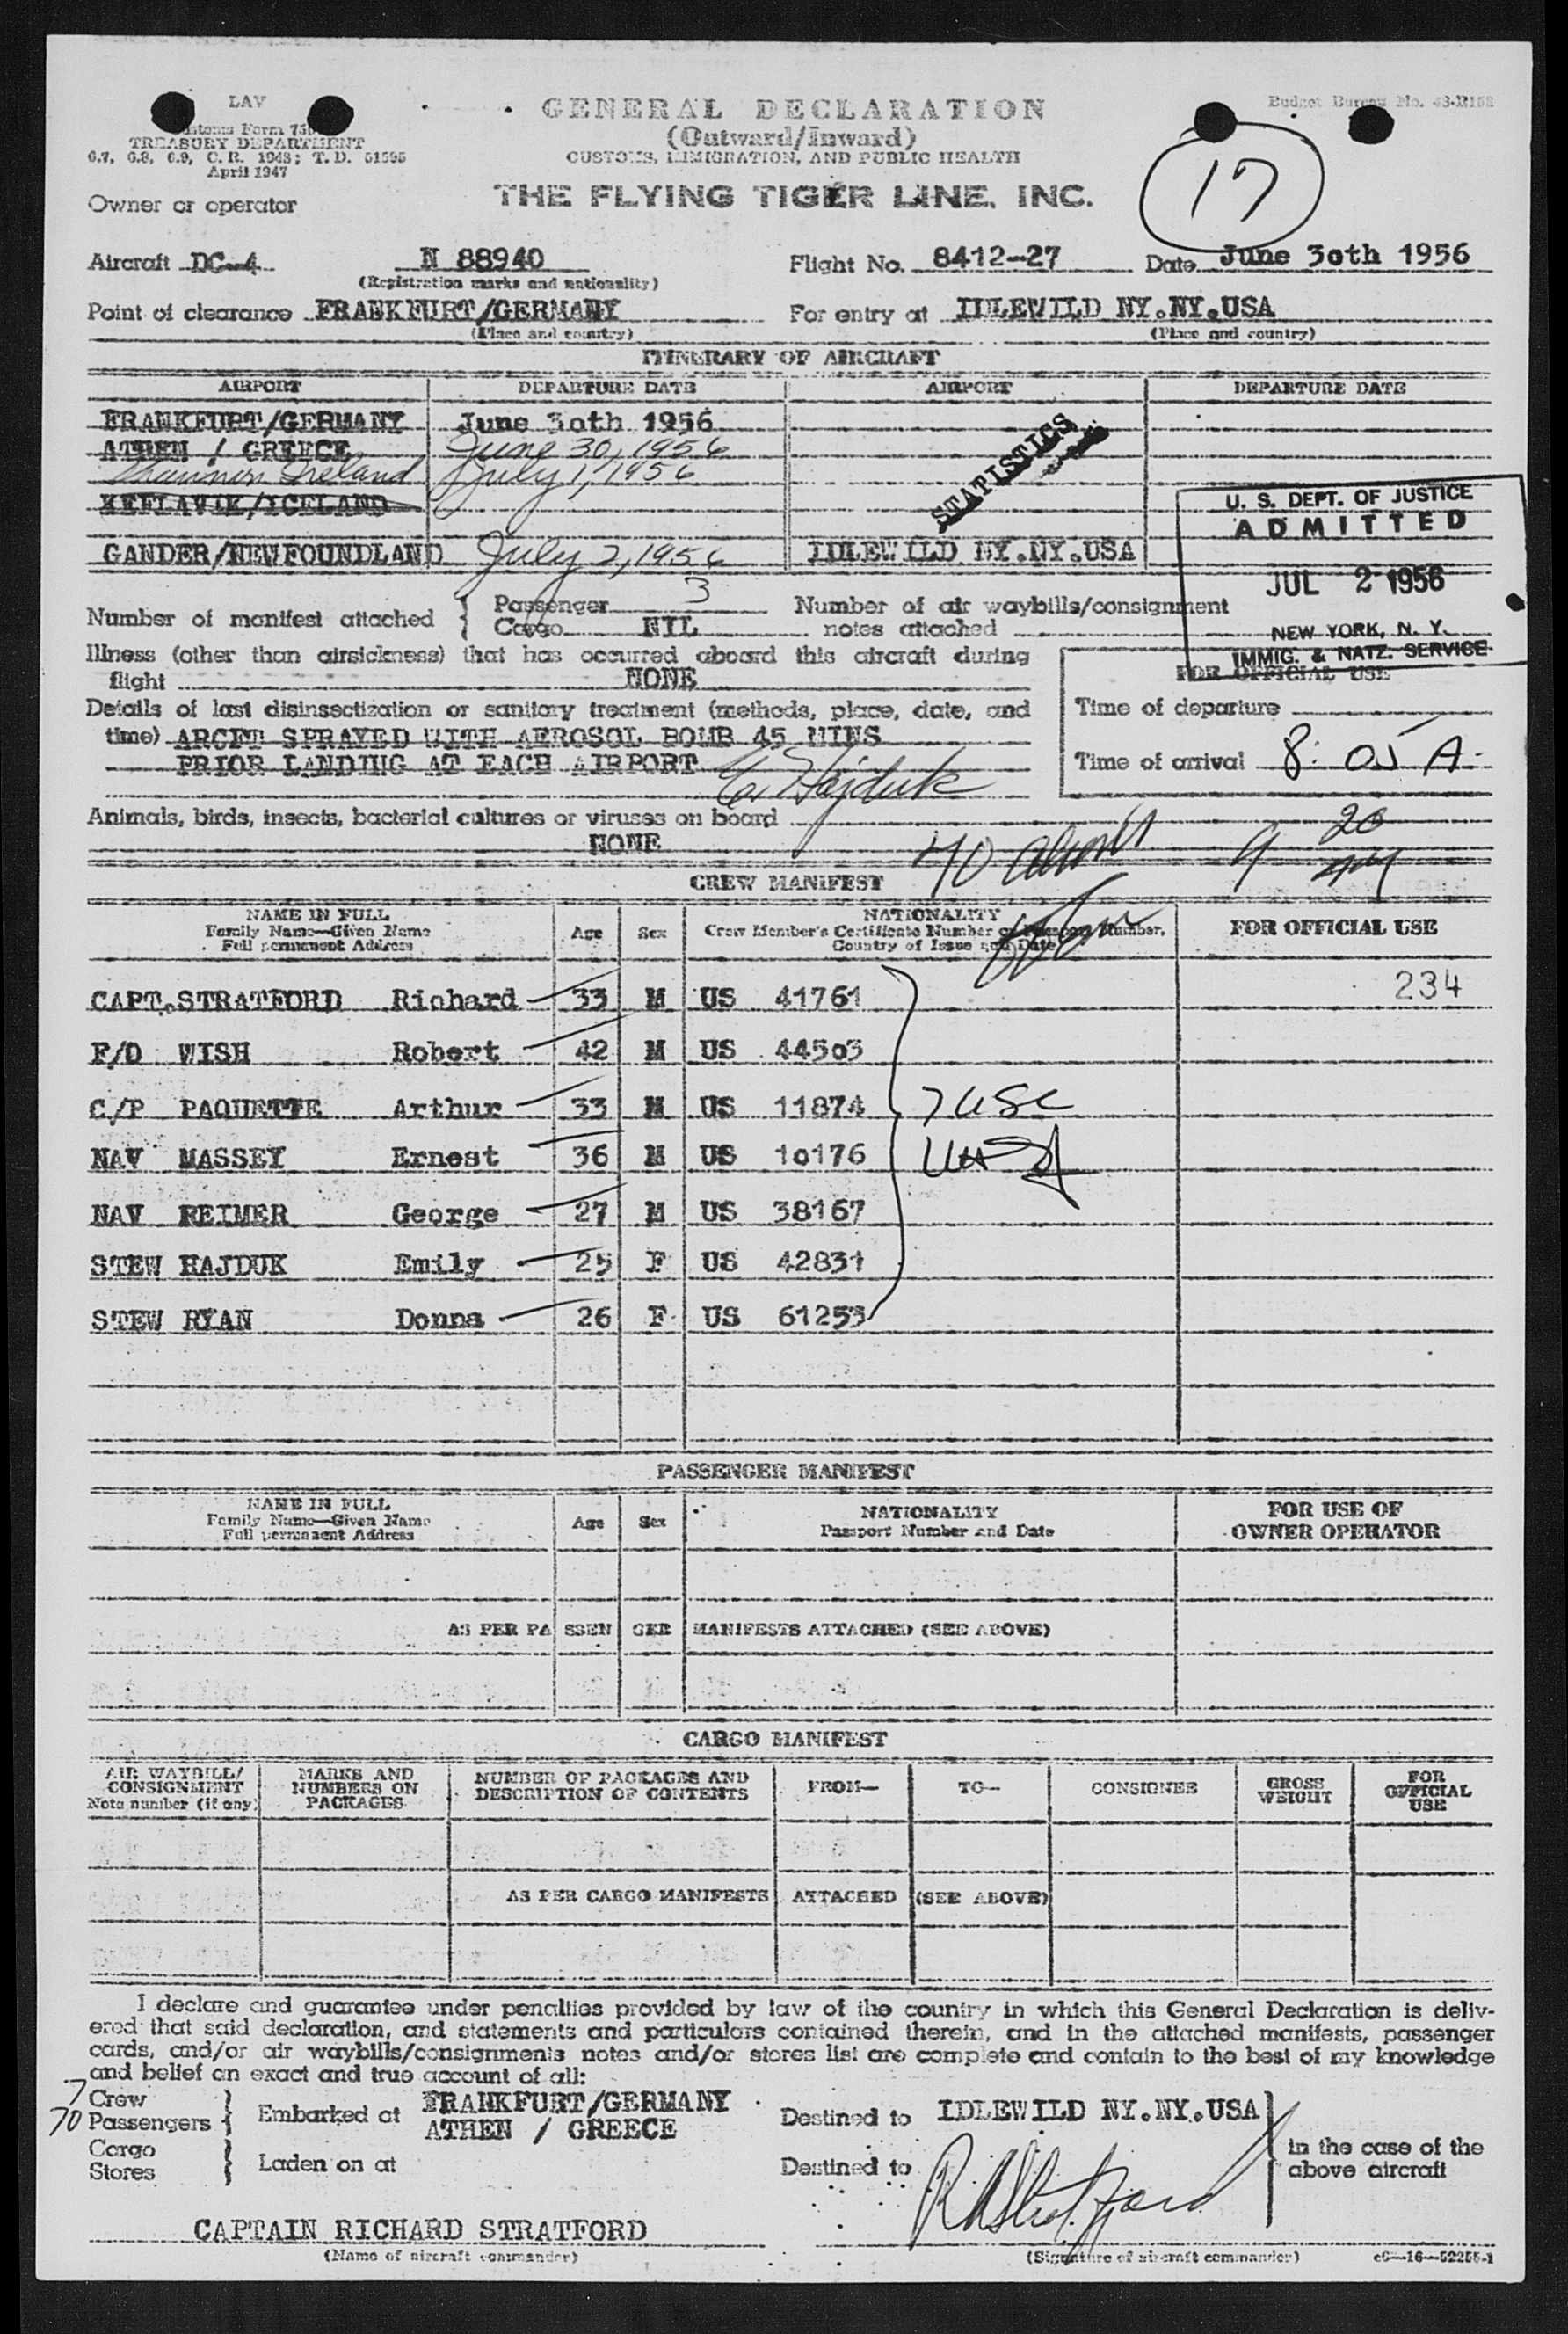 LAV
Customs Form 75
TREASURY DEPARTMENT
6.7, 6.8, 6.9, C. R. 1943; T. D. 51595
April 1947
GENERAL DECLARATION
(Outward/Inward)
CUSTOMS, IMMIGRATION, AND PUBLIC HEALTH
Budget Bureau No. 43-R152
17
Owner or operator THE FLYING TIGER LINE, INC.
Aircraft DC-4 N 88940 Flight No. 8412-27 Date June 3oth 1956
(Registration marks and nationality)
Point of clearance FRANKFURT/GERMANY For entry at IDLEWILD NY.NY.USA
(Place and country) (Place and country)
ITINERARY OF AIRCRAFT
AIRPORT DEPARTURE DATE AIRPORT DEPARTURE DATE
FRANKFURT/GERMANY June 3oth 1956
ATHEN / GREECE June 30, 1956
Shannon Ireland July 1, 1956
KEFLAVIK/ICELAND
GANDER/NEWFOUNDLAND July 2, 1956 IDLEWILD NY.NY.USA
STATISTICS
U. S. DEPT. OF JUSTICE
ADMITTED
JUL 2 1956
NEW YORK, N. Y.
IMMIG. & NATZ. SERVICE
Number of manifest attached } Passenger 3 Number of air waybills/consignment
Cargo NIL notes attached
Illness (other than airsickness) that has occurred aboard this aircraft during
flight NONE
FOR OFFICIAL USE
Details of last disinsectization or sanitary treatment (methods, place, date, and
time) ARCFT SPRAYED WITH AEROSOL BOMB 45 MINS
PRIOR LANDING AT EACH AIRPORT
E. Hajduk
Time of departure
Time of arrival 8:05 A
Animals, birds, insects, bacterial cultures or viruses on board
NONE
70 9 20
CREW MANIFEST
NAME IN FULL
Family Name—Given Name
Full permanent Address
Age Sex
NATIONALITY
Crew Member's Certificate Number or Passport Number,
Country of Issue and Date
FOR OFFICIAL USE
CAPT. STRATFORD Richard 33 M US 41761 234
F/O WISH Robert 42 M US 445o3
C/P PAQUETTE Arthur 33 M US 11874 7 USC
NAV MASSEY Ernest 36 M US 1o176
NAV REIMER George 27 M US 38167
STEW HAJDUK Emily 25 F US 42831
STEW RYAN Donna 26 F US 61253
PASSENGER MANIFEST
NAME IN FULL
Family Name—Given Name
Full permanent Address
Age Sex
NATIONALITY
Passport Number and Date
FOR USE OF
OWNER OPERATOR
AS PER PASSENGER MANIFESTS ATTACHED (SEE ABOVE)
CARGO MANIFEST
AIR WAYBILL/
CONSIGNMENT
Note number (if any)
MARKS AND
NUMBERS ON
PACKAGES
NUMBER OF PACKAGES AND
DESCRIPTION OF CONTENTS
FROM— TO— CONSIGNEE
GROSS
WEIGHT
FOR
OFFICIAL
USE
AS PER CARGO MANIFESTS ATTACHED (SEE ABOVE)
I declare and guarantee under penalties provided by law of the country in which this General Declaration is deliv-
ered that said declaration, and statements and particulars contained therein, and in the attached manifests, passenger
cards, and/or air waybills/consignments notes and/or stores list are complete and contain to the best of my knowledge
and belief an exact and true account of all:
7 Crew
70 Passengers } Embarked at FRANKFURT/GERMANY
ATHEN / GREECE
Destined to IDLEWILD NY.NY.USA
Cargo
Stores } Laden on at Destined to
in the case of the
above aircraft
R Stratford
CAPTAIN RICHARD STRATFORD
(Name of aircraft commander) (Signature of aircraft commander) c6—16—52255-1